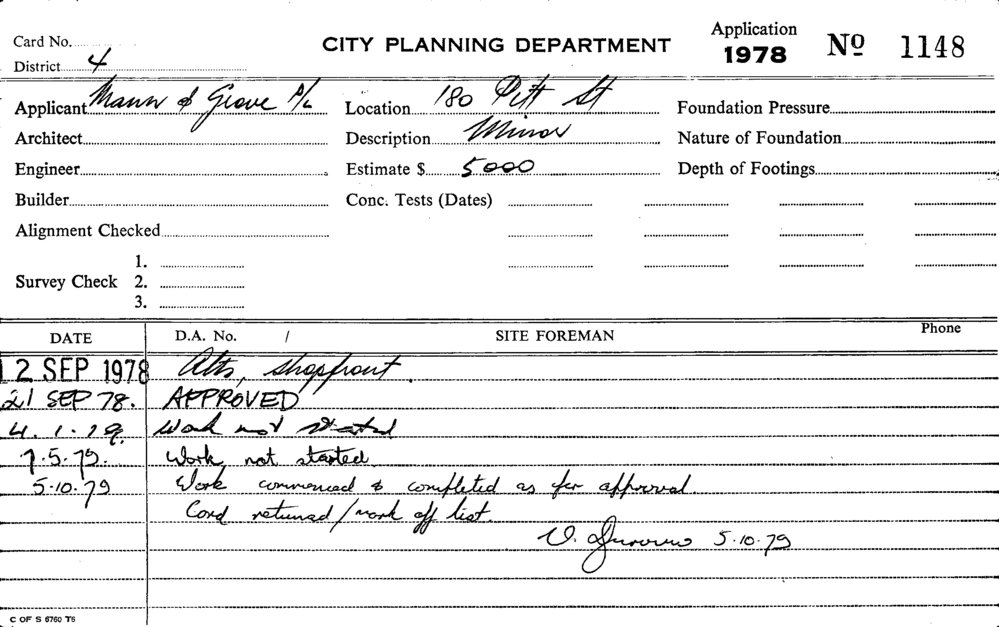 Card No.
District 4
CITY PLANNING DEPARTMENT
Application
1978
No 1148
Applicant Mann & Grove P/L
Location 180 Pitt St
Foundation Pressure
Architect
Description Minor
Nature of Foundation
Engineer
Estimate $ 5000
Depth of Footings
Builder
Conc. Tests (Dates)
Alignment Checked
Survey Check
1.
2.
3.
DATE
D.A. No. /
SITE FOREMAN
Phone
12 SEP 1978 Alts, shopfront.
21 SEP 78. APPROVED
4.1.79. Work not started
7.5.79. Work not started
5.10.79 Work commenced & completed as per approval.
Card returned/mark off list.
V. 5.10.79
C OF S 6760 T6